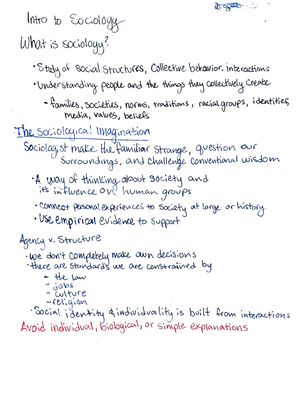 Intro to Sociology
What is sociology?
• Study of social structures, Collective behavior, interactions
• Understanding people and the things they collectively create
• families, societies, norms, traditions, racial groups, identities,
media, values, beliefs
The Sociological Imagination
Sociologist make the familiar strange, question our
surroundings, and challenge conventional wisdom
• A way of thinking about society and
its influence on human groups
• connect personal experiences to society at large or history.
• Use empirical evidence to support
Agency v. Structure
• we don't completely make own decisions
• there are standards we are constrained by
- the law
- jobs
- culture
- religion
• Social identity & individuality is built from interactions
Avoid individual, biological, or simple explanations